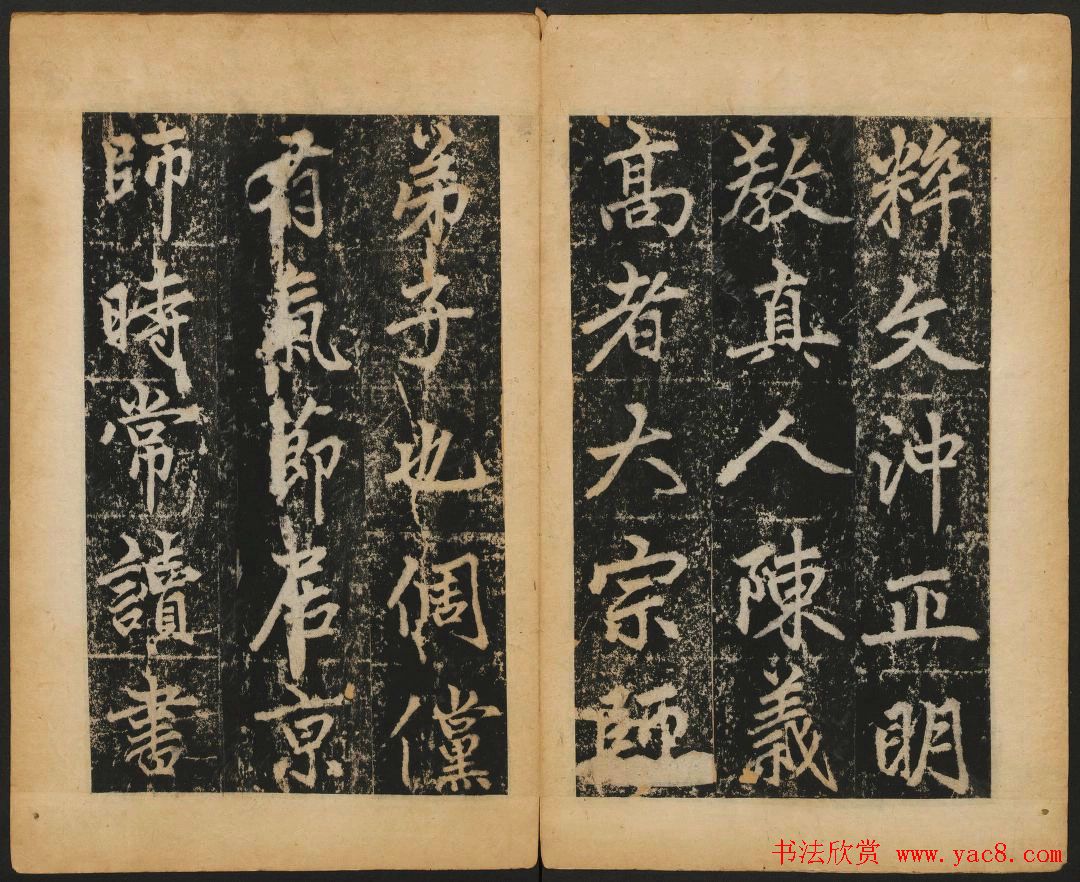 粹文沖正明
教真人陳義
高者大宗師
弟子也倜儻
有氣節居京
師時常讀書
书法欣赏 www.yac8.com